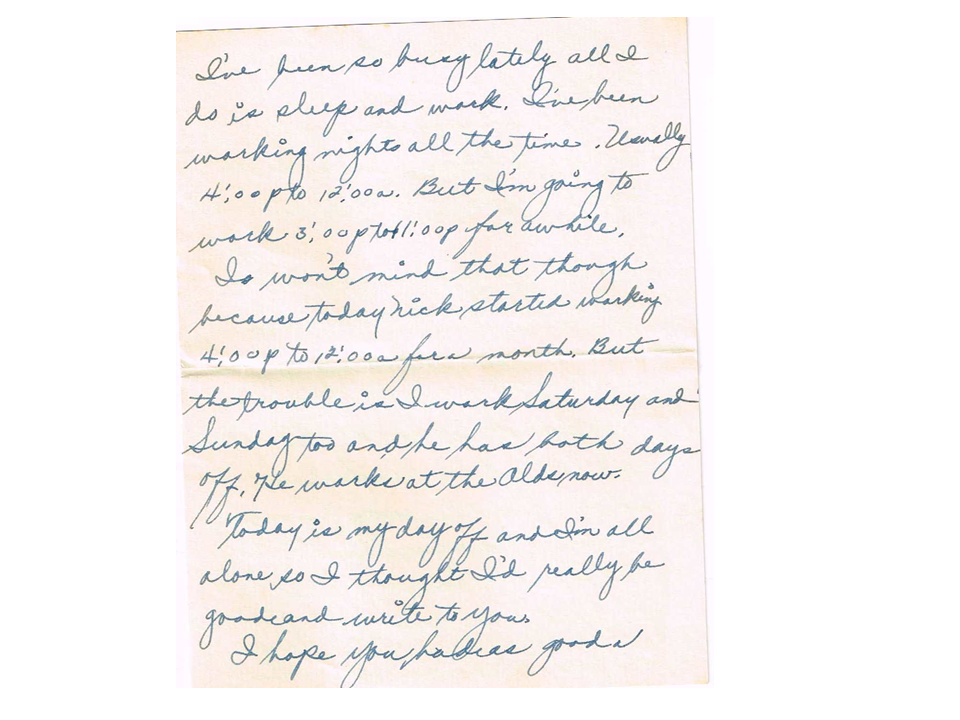 I've been so busy lately all I
do is sleep and work. I've been
working nights all the time. Usually
4:00p to 12:00a. But I'm going to
work 3:00p to 11:00p for awhile.
I won't mind that though
because today Nick started working
4:00p to 12:00a for a month. But
the trouble is I work Saturday and
Sunday too and he has both days
off. He works at the Olds now.
Today is my day off and I'm all
alone so I thought I'd really be
good and write to you.
I hope you had as good a